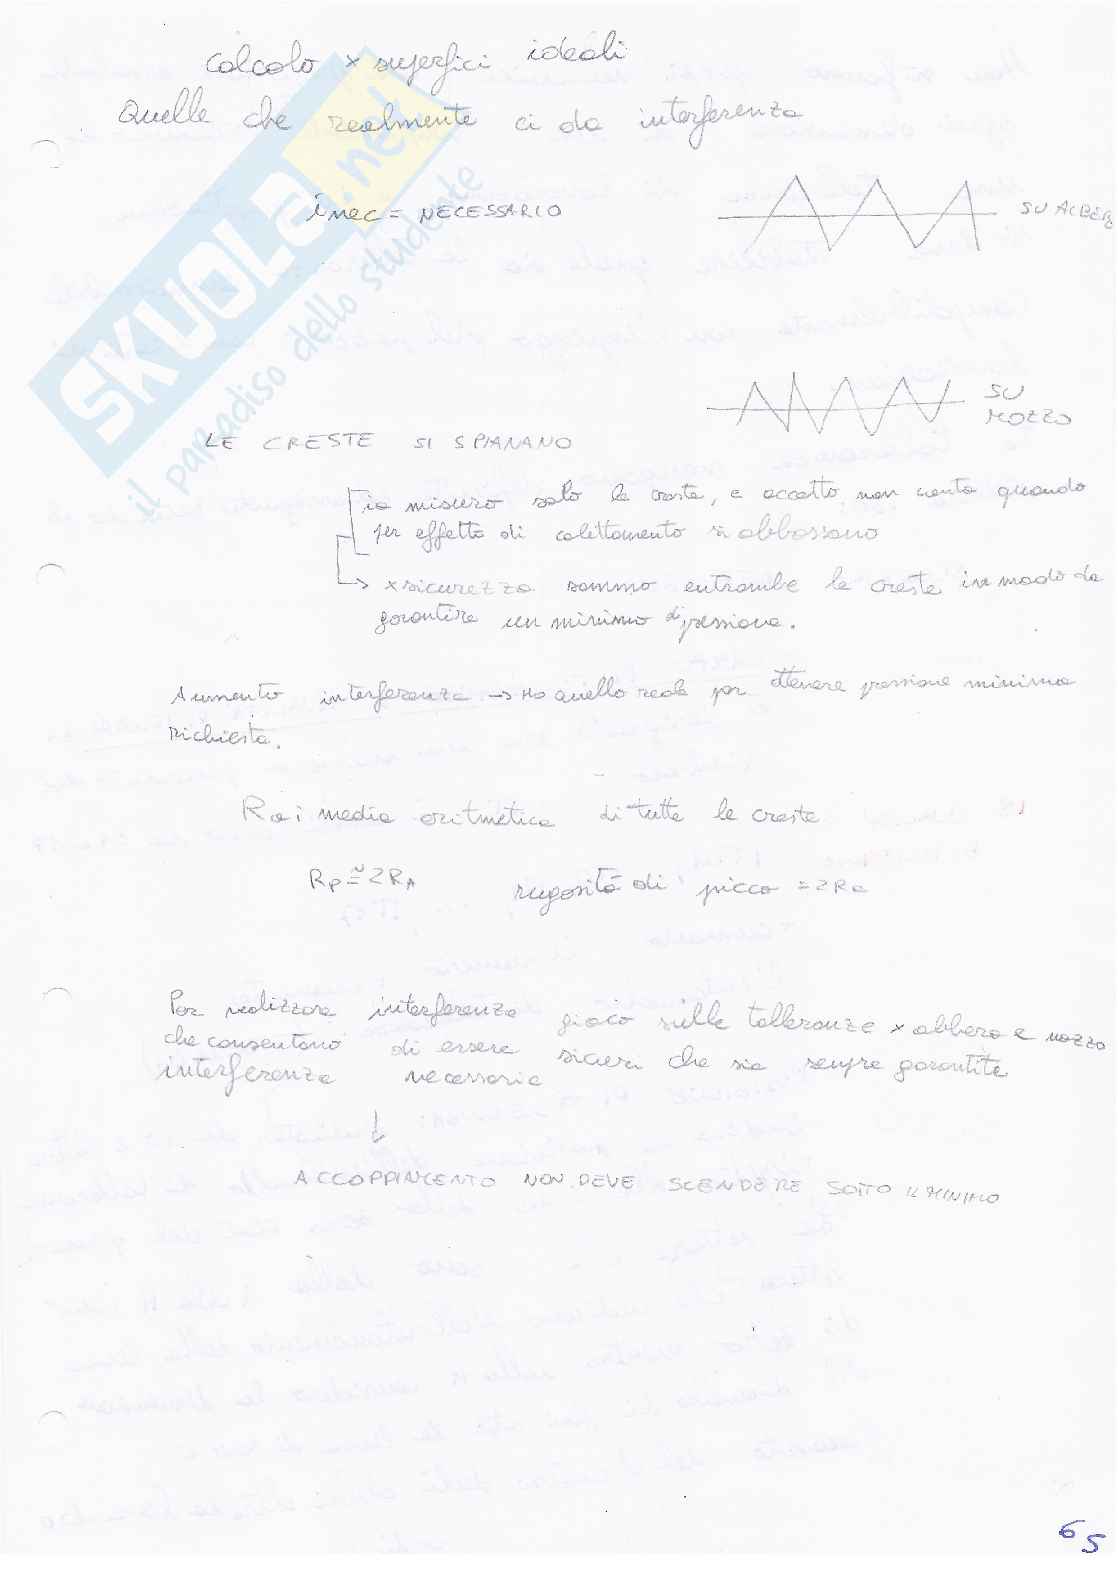 Calcolo x superfici ideali
Quelle che realmente ci da interferenza
inec = NECESSARIO
SU ALBERO
SU
MOZZO
LE CRESTE SI SPIANANO
io misuro solo le creste, e accetto non conto quando
per effetto di calettamento si abbassano
→ x sicurezza sommo entrambe le creste in modo da
garantire un minimo di pressione.
Aumento interferenza → Ho quello reale per ottenere pressione minima
richiesta.
Ra : media aritmetica di tutte le creste
RP ≅ 2RA rugosità di picco = 2Ra
Per realizzare interferenza gioco sulle tolleranze x albero e mozzo
che consentano di essere sicuri che sia sempre garantita
interferenza necessaria
↓
ACCOPPIAMENTO NON DEVE SCENDERE SOTTO IL MINIMO
65
SKUOLA.net
il paradiso dello studente